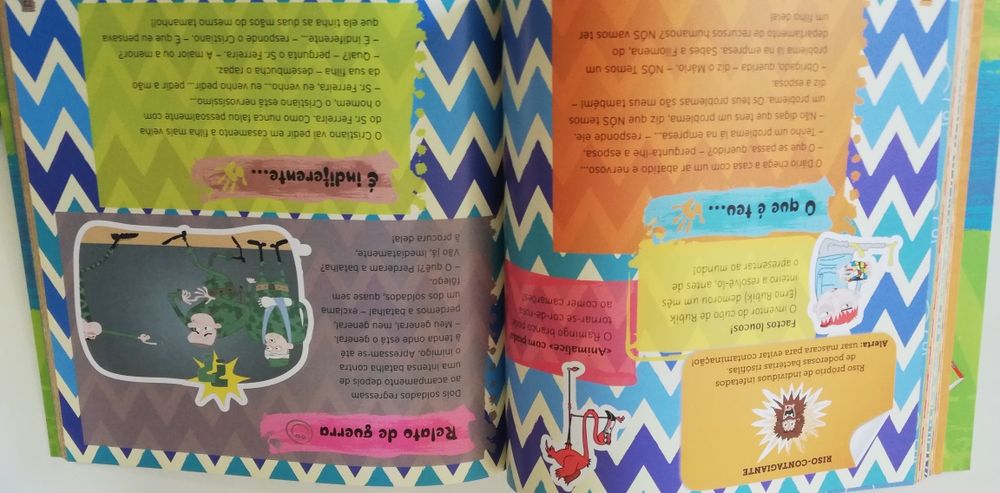 RISO-CONTAGIANTE
Riso próprio de indivíduos infetados
de poderosas bactérias risófilas.
Alerta: usar máscara para evitar contaminação!
«Animalice» com piada
O flamingo branco pode
tornar-se cor-de-rosa
ao comer camarões!
Factos loucos!
O inventor do cubo de Rubik
(Erno Rubik) demorou um mês
inteiro a resolvê-lo, antes de
o apresentar ao mundo!
O que é teu...
O Dário chega a casa com um ar abatido e nervoso...
– O que se passa, querido? – pergunta-lhe a esposa.
– Tenho um problema lá na empresa... – responde ele.
– Não digas que tens um problema, diz que NÓS temos
um problema. Os teus problemas são meus também! –
diz a esposa.
– Obrigado, querida – diz o Mário. – NÓS Temos um
problema lá na empresa. Sabes a Filomena, do
departamento de recursos humanos? NÓS vamos ter
um filho dela!
Relato de guerra
Dois soldados regressam
ao acampamento depois de
uma intensa batalha contra
o inimigo. Apressam-se até
à tenda onde está o general.
– Meu general, meu general,
perdemos a batalha! – exclama
um dos soldados, quase sem
fôlego.
– O quê?! Perderam a batalha?
Vão já, imediatamente,
à procura dela!
É indiferente...
O Cristiano vai pedir em casamento a filha mais velha
do Sr. Ferreira. Como nunca falou pessoalmente com
o homem, o Cristiano está nervosíssimo...
– Sr. Ferreira, eu venho... eu venho pedir... pedir a mão
da sua filha – desembucha o rapaz.
– Qual? – pergunta o Sr. Ferreira. – A maior ou a menor?
– É indiferente... – responde o Cristiano. – É que eu pensava
que ela tinha as duas mãos do mesmo tamanho!!